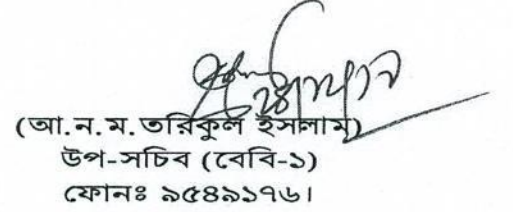 (আ.ন.ম. তরিকুল ইসলাম)
উপ-সচিব (বেবি-১)
ফোনঃ ৯৫৪৯১৭৬।